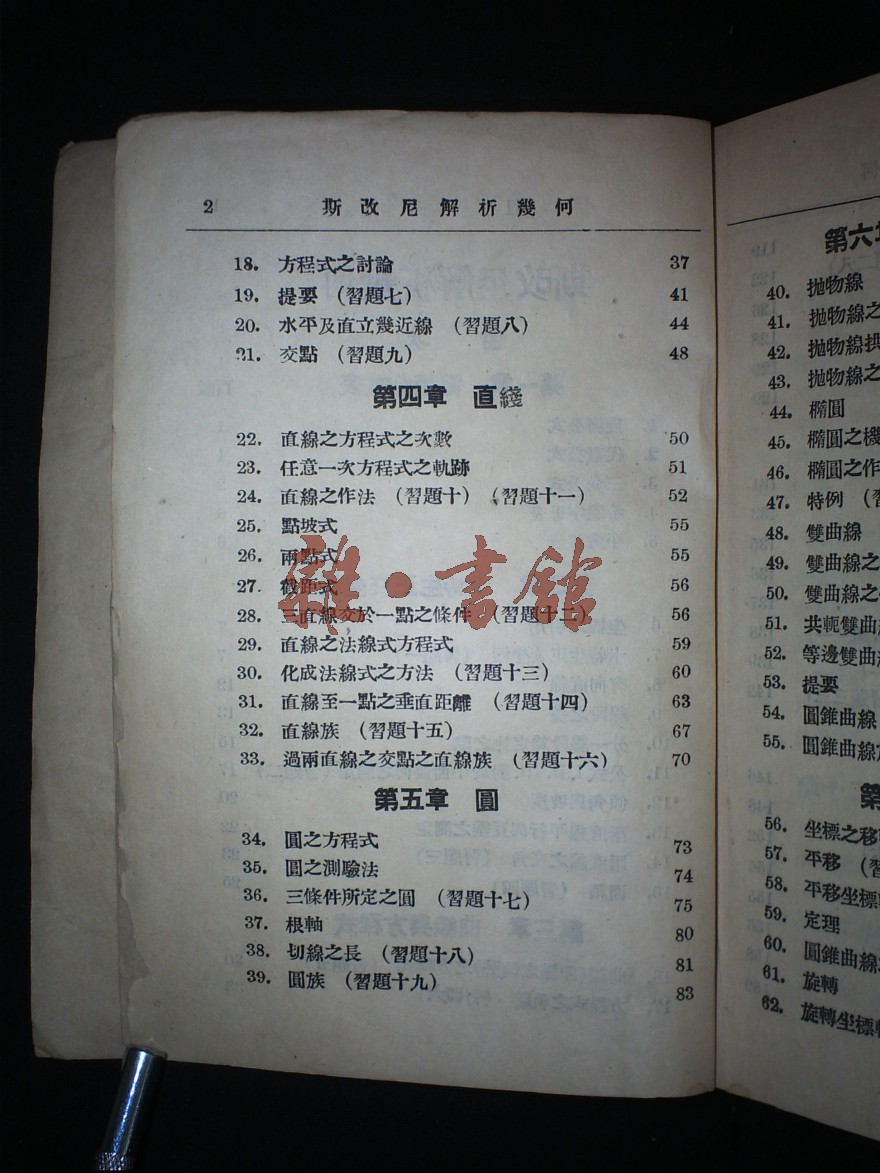 2 斯改尼解析幾何
18. 方程式之討論 37
19. 提要 (習題七) 41
20. 水平及直立幾近線 (習題八) 44
21. 交點 (習題九) 48
第四章 直綫
22. 直線之方程式之次數 50
23. 任意一次方程式之軌跡 51
24. 直線之作法 (習題十) (習題十一) 52
25. 點坡式 55
26. 兩點式 55
27. 截距式 56
28. 三直線交於一點之條件 (習題十二) 56
29. 直線之法線式方程式 59
30. 化成法線式之方法 (習題十三) 60
31. 直線至一點之垂直距離 (習題十四) 63
32. 直線族 (習題十五) 67
33. 過兩直線之交點之直線族 (習題十六) 70
第五章 圓
34. 圓之方程式 73
35. 圓之測驗法 74
36. 三條件所定之圓 (習題十七) 75
37. 根軸 80
38. 切線之長 (習題十八) 81
39. 圓族 (習題十九) 83
雜·書館
第六章
40. 拋物線
41. 拋物線之
42. 拋物線拱
43. 拋物線之
44. 橢圓
45. 橢圓之機
46. 橢圓之作
47. 特例 (習
48. 雙曲線
49. 雙曲線之
50. 雙曲線之
51. 共軛雙曲
52. 等邊雙曲
53. 提要
54. 圓錐曲線
55. 圓錐曲線
第
56. 坐標之移
57. 平移 (習
58. 平移坐標
59. 定理
60. 圓錐曲線
61. 旋轉
62. 旋轉坐標